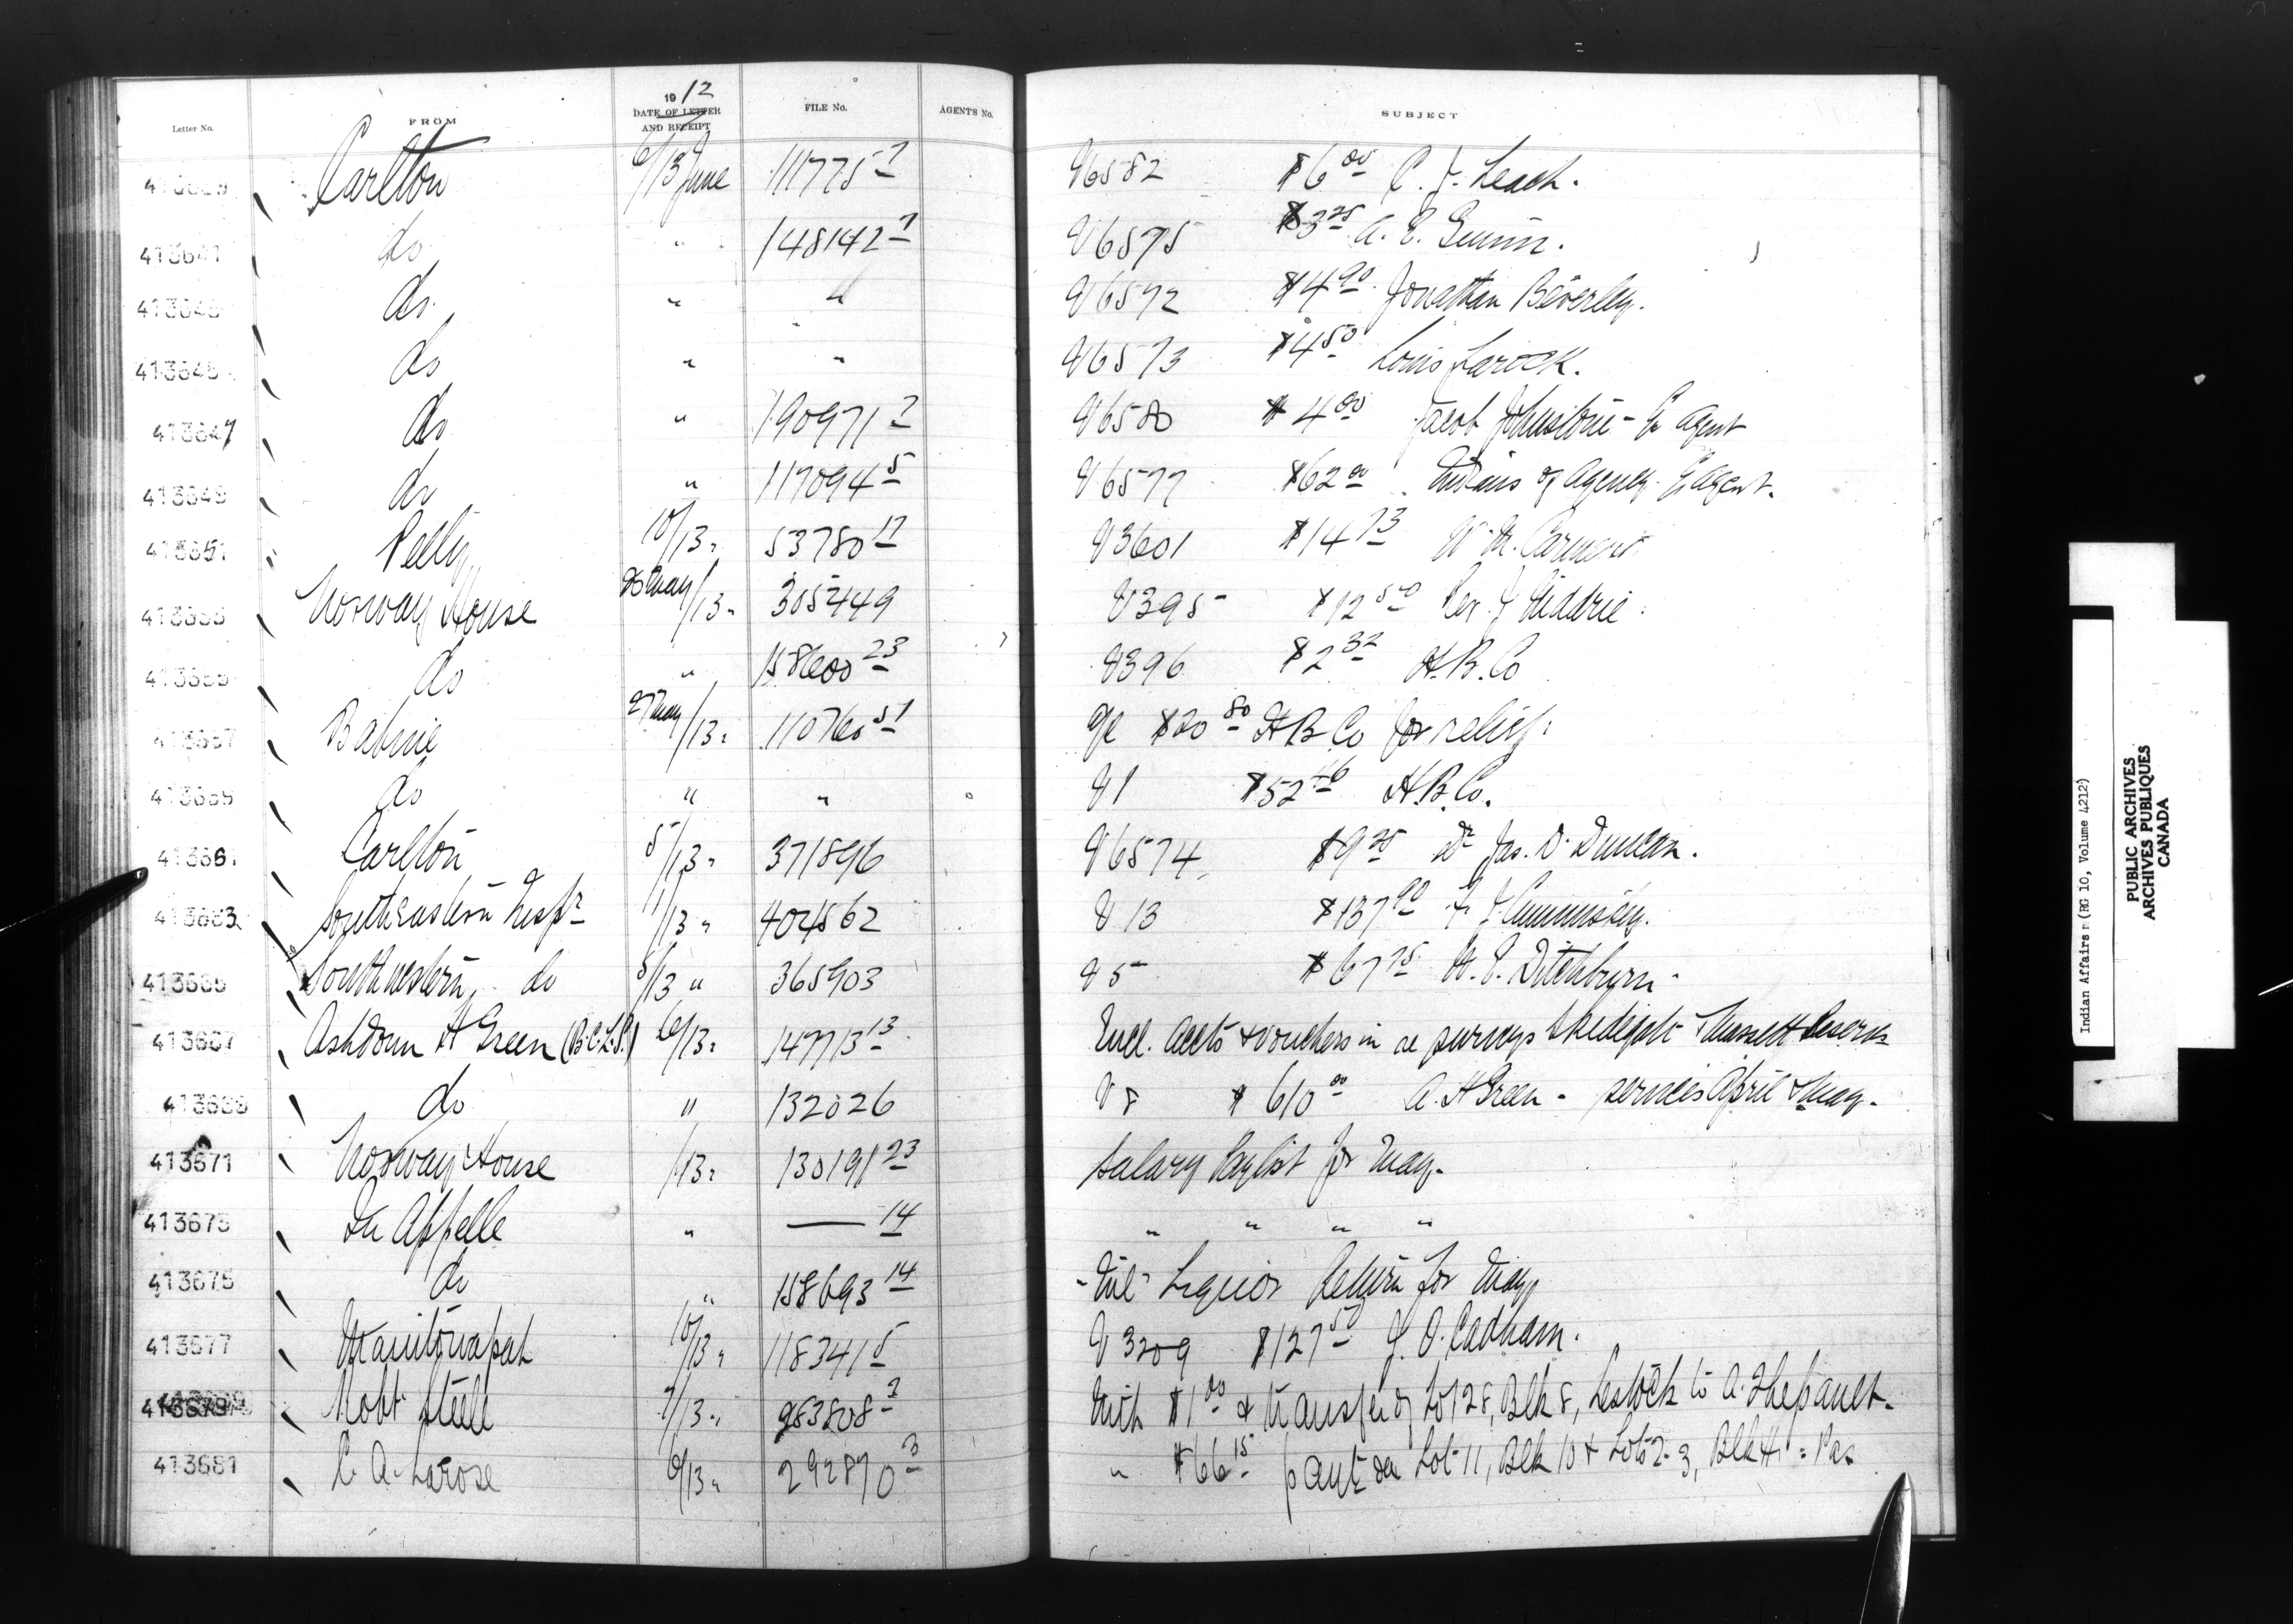 Letter No. FROM 1912 DATE OF LETTER AND RECEIPT FILE No. AGENT'S No. SUBJECT
Carlton 6/13 June 111775 2 V6582 $6 00 C. J. Leach.
413641 do " 148142 1 V6575 $3 25 A. E.
do " " V6572 $4 90 Jonathan Beverley.
413645 do " " V6573 $4 50 Louis Larock.
413647 do " 190971 2 V6580 $4 00 Jacob Johnstone - Agent
413649 do " 117094 5 V6577 $62 00 Indians of Agency. Agent.
413651 Pelly 10/13 " 53780 17 V3601 $14 73 W. M.
Norway House 26 May/13 " 305449 V395 $12 50 Rev. J.
do " 158600 23 V396 $2 32 H.B.Co
413657 Babine 27 May/13 " 110760 51 $20 80 H B Co for relief.
413659 do " " V1 $52 46 H.B.Co.
413661 Carlton 5/13 " 371896 V6574 $9 25 Dr Jas. D. Duncan.
413663 Southeastern Inspr 1/13 " 404562 V13 $137 90
413665 Southwestern do 5/13 " 365903 V5 $67 75 W. E. Ditchburn.
413667 Ashdown H Green (B.C.L.S.) 6/13 " 147713 13 Encl. Accts & vouchers in re surveys Skidegate & Massett Reserves
413669 do " 132026 V8 $610 00 A. H Green - services April & May.
413671 Norway House /13 " 130191 23 Salary Paylist for May.
413673 Qu Appelle " — 14 " " " "
413675 do " 158693 14 Liquor Return for May
413677 Manitowapah 10/13 " 118341 5 V3209 $127 50 Cadham.
413679 Robt Steele 7/13 " 983808 2 With $1 00 & transfer of Lot 28, Blk 8, Lestock to A.
413681 A. Larose 6/13 " 292870 3 " $66 15 paymt on Lot 11, Blk 10 & Lots 2-3, Blk
Indian Affairs (RG 10, Volume 4212)
PUBLIC ARCHIVES
ARCHIVES PUBLIQUES
CANADA